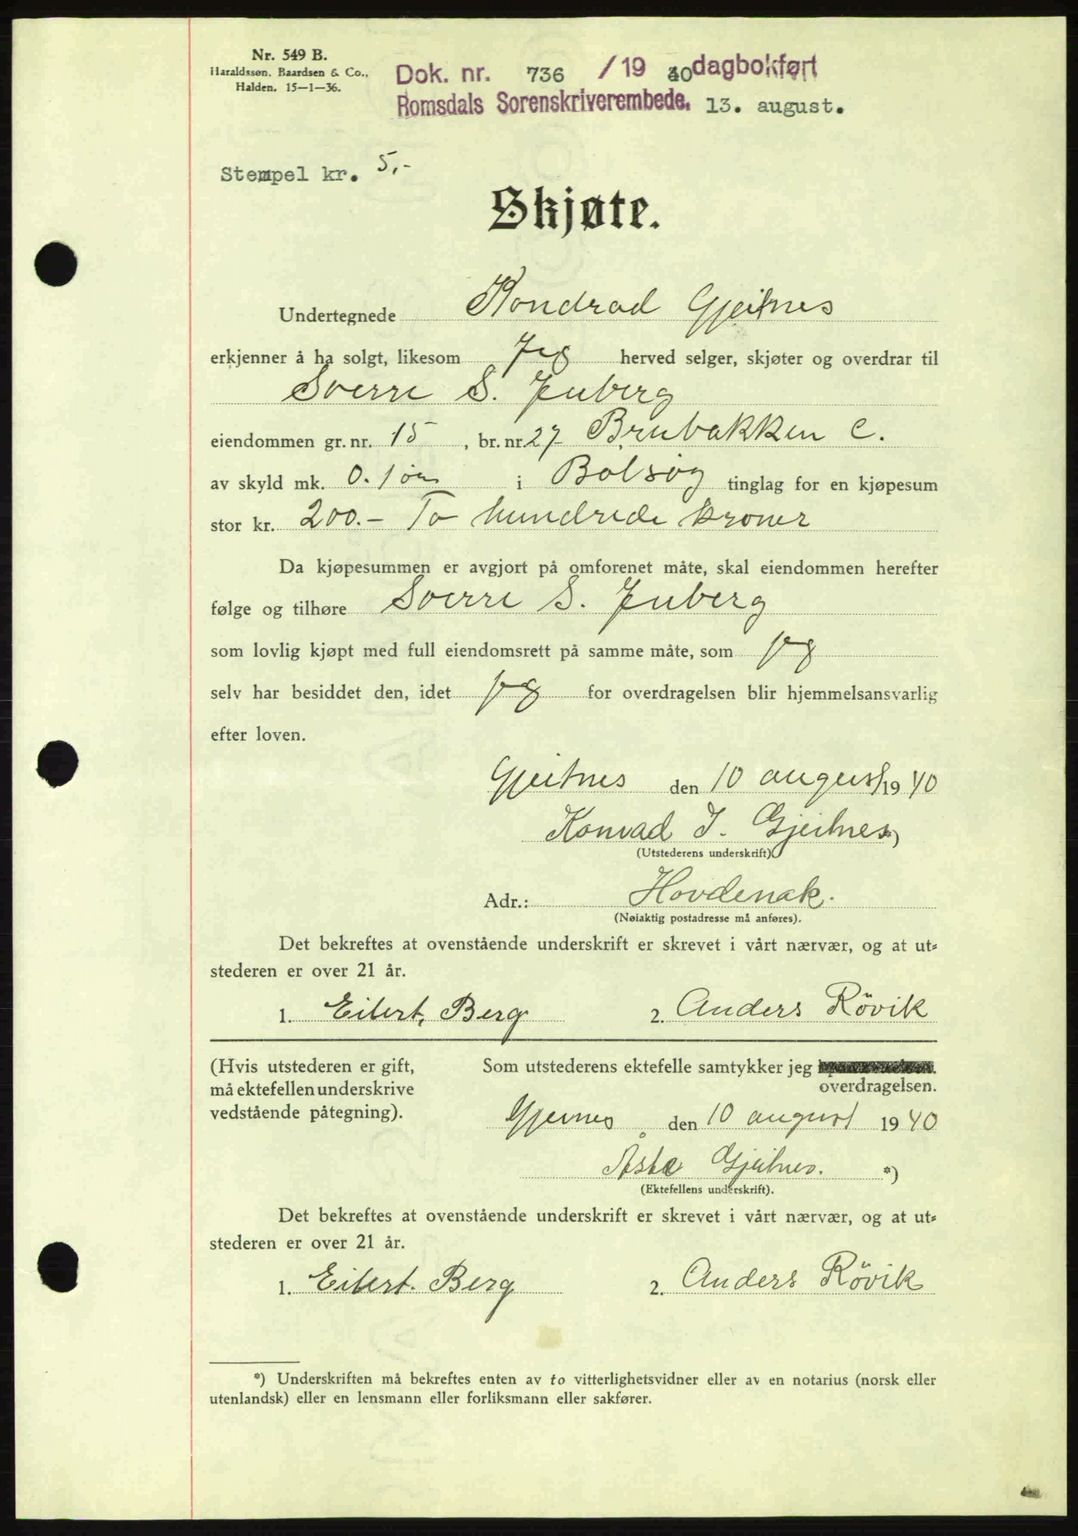 Nr. 549 B.
Haraldssøn. Baardsen & Co.,
Halden. 15—1—36.
Dok. nr. 736 /19 40 dagbokført
Romsdals Sorenskriverembede. 13. august.
Stempel kr. 5,-
Skjøte.
Undertegnede Kondrad Gjeitnes
erkjenner å ha solgt, likesom Jeg herved selger, skjøter og overdrar til
Sverre S. Juberg
eiendommen gr. nr. 15, br. nr. 27 Brubakken C.
av skyld mk. 0.1 øre i Bolsøy tinglag for en kjøpesum
stor kr. 200.- To hundrede kroner
Da kjøpesummen er avgjort på omforenet måte, skal eiendommen herefter
følge og tilhøre Sverre S. Juberg
som lovlig kjøpt med full eiendomsrett på samme måte, som jeg
selv har besiddet den, idet jeg for overdragelsen blir hjemmelsansvarlig
efter loven.
Gjeitnes den 10 august 1940
Konrad J. Gjeitnes *)
(Utstederens underskrift)
Adr.: Hovdenak.
(Nøiaktig postadresse må anføres).
Det bekreftes at ovenstående underskrift er skrevet i vårt nærvær, og at ut-
stederen er over 21 år.
1. Eilert. Berg 2. Anders Rövik
(Hvis utstederen er gift, Som utstederens ektefelle samtykker jeg
må ektefellen underskrive overdragelsen.
vedstående påtegning). Gjeitnes den 10 august 1940
Åsta Gjeitnes. *)
(Ektefellens underskrift).
Det bekreftes at ovenstående underskrift er skrevet i vårt nærvær, og at ut-
stederen er over 21 år.
1. Eilert. Berg 2. Anders Rövik
*) Underskriften må bekreftes enten av to vitterlighetsvidner eller av en notarius (norsk eller
utenlandsk) eller en lensmann eller forliksmann eller sakfører.